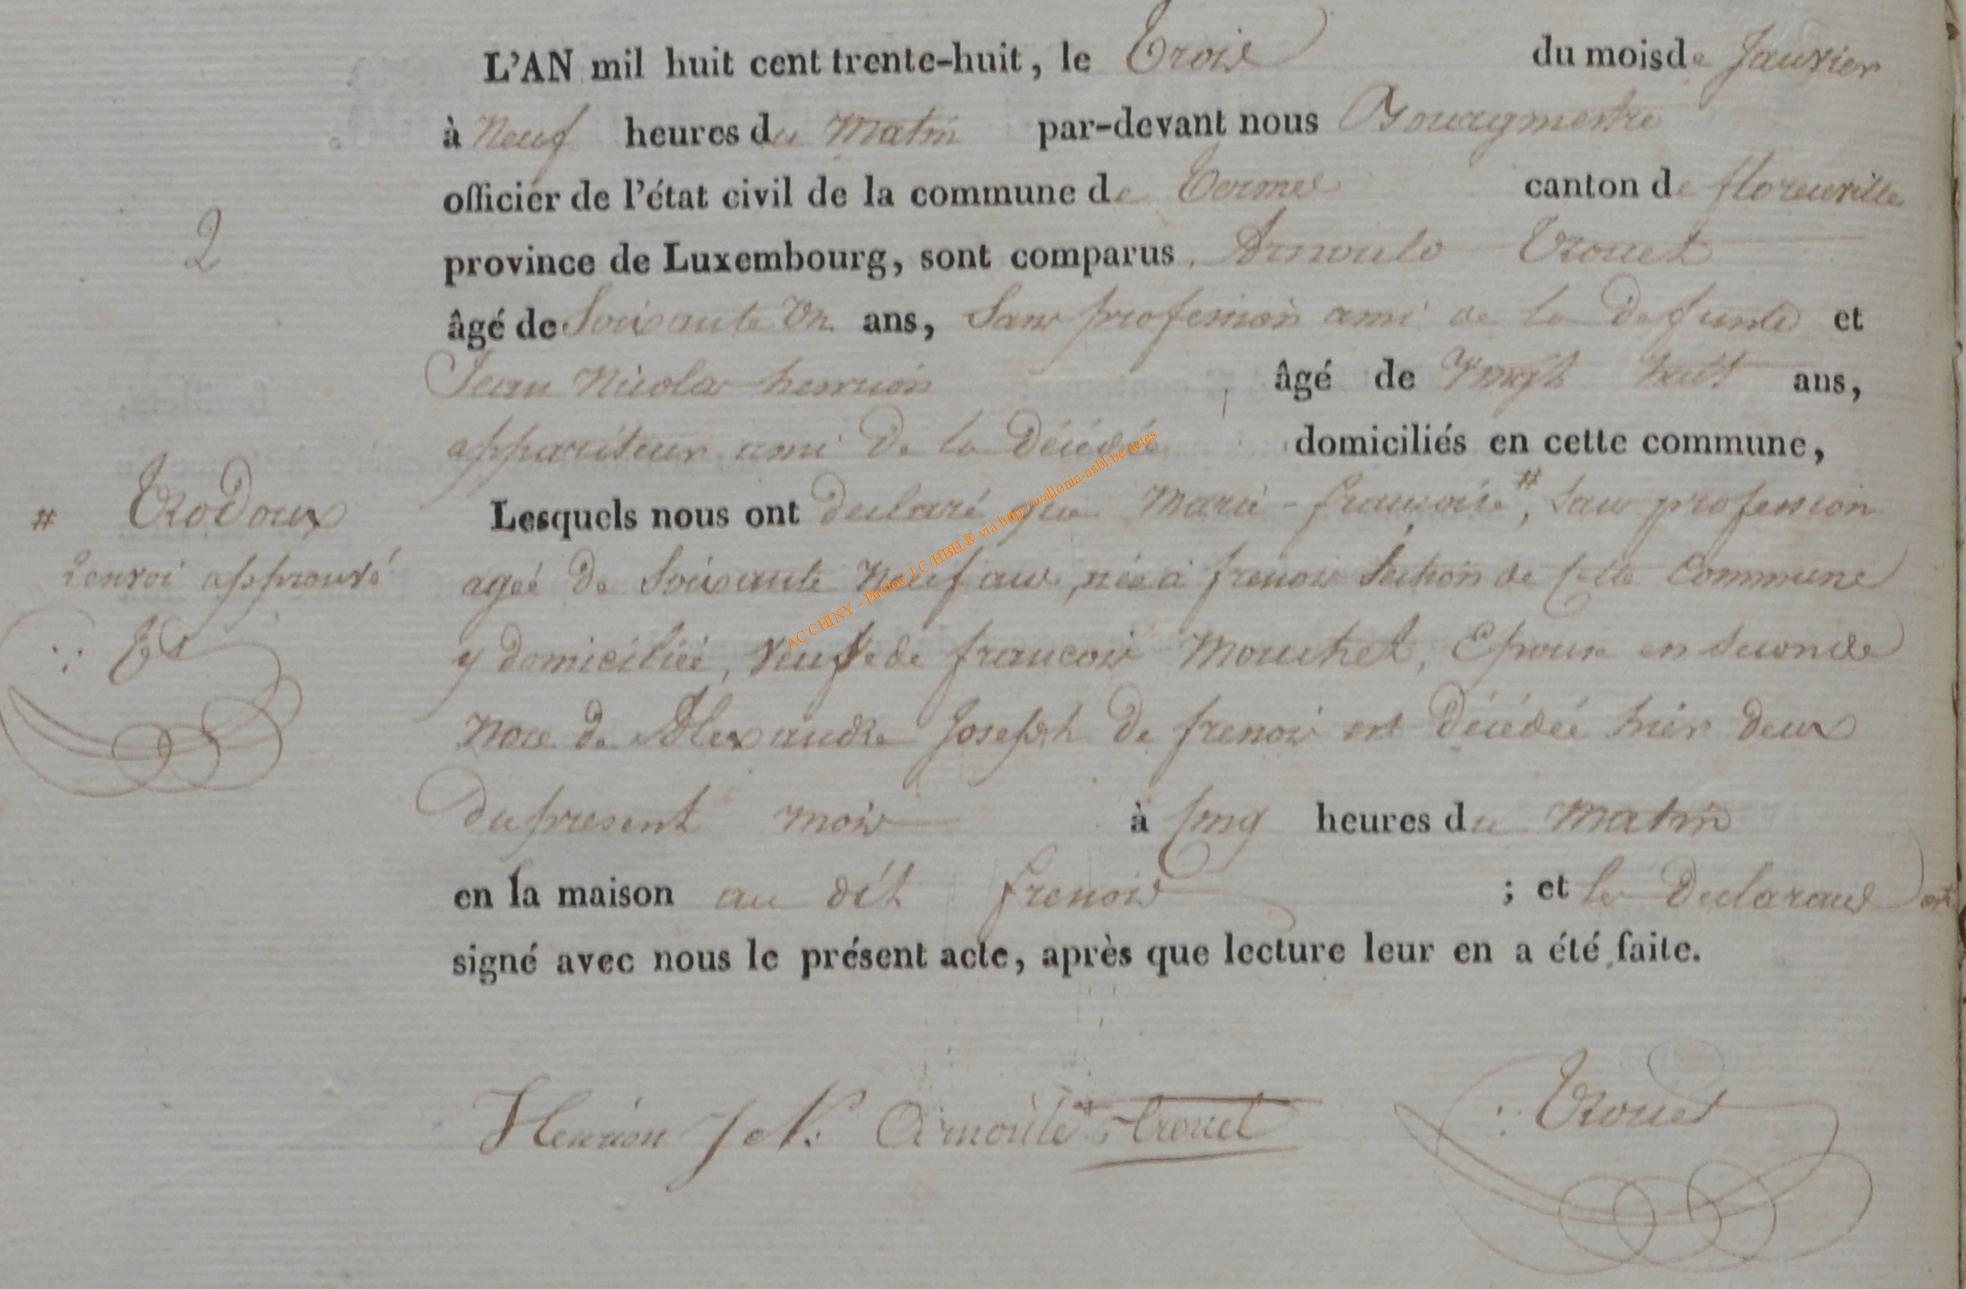 L'AN mil huit cent trente-huit, le Trois du mois de Janvier
à Neuf heures du Matin par-devant nous Bourgmestre
officier de l'état civil de la commune de Termes canton de florenville
province de Luxembourg, sont comparus Arnould Trouet
2
âgé de Soixante Un ans, Sans profession ami de la Defunte et
Jean Nicolas henrion, âgé de Vingt huit ans,
appariteur ami De la Décédée domiciliés en cette commune,
# Trodoux
Lesquels nous ont declaré que Marie-françoise #, sans profession
renvoi approuvé
agée De Soixante Neuf ans, née à frenois Section de cette Commune
y domiciliée, Veufve de francois Mouchet, Epouse en seconde
Noce de Alexandre Joseph De frenois est Décédée hier Deux
Du present mois à Cinq heures du Matin
en la maison au dit frenois ; et les Declarans ont
signé avec nous le présent acte, après que lecture leur en a été faite.
Henrion J. N. Arnould Trouet Trouet
AC CHINY - Photos J.C/HBH® via http://wallonia-asbl.be actes